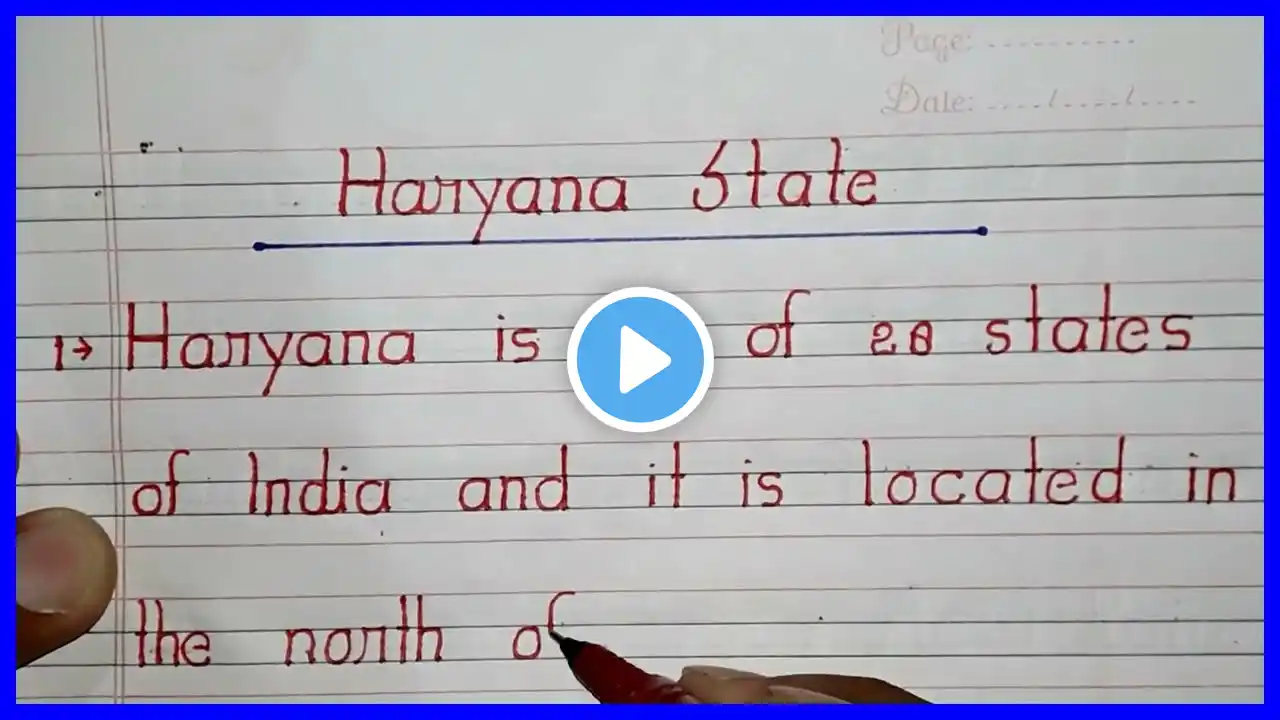 Page: ..........
Date: ..../..../....
Haryana State
1→ Haryana is of 28 states
of India and it is located in
the north of